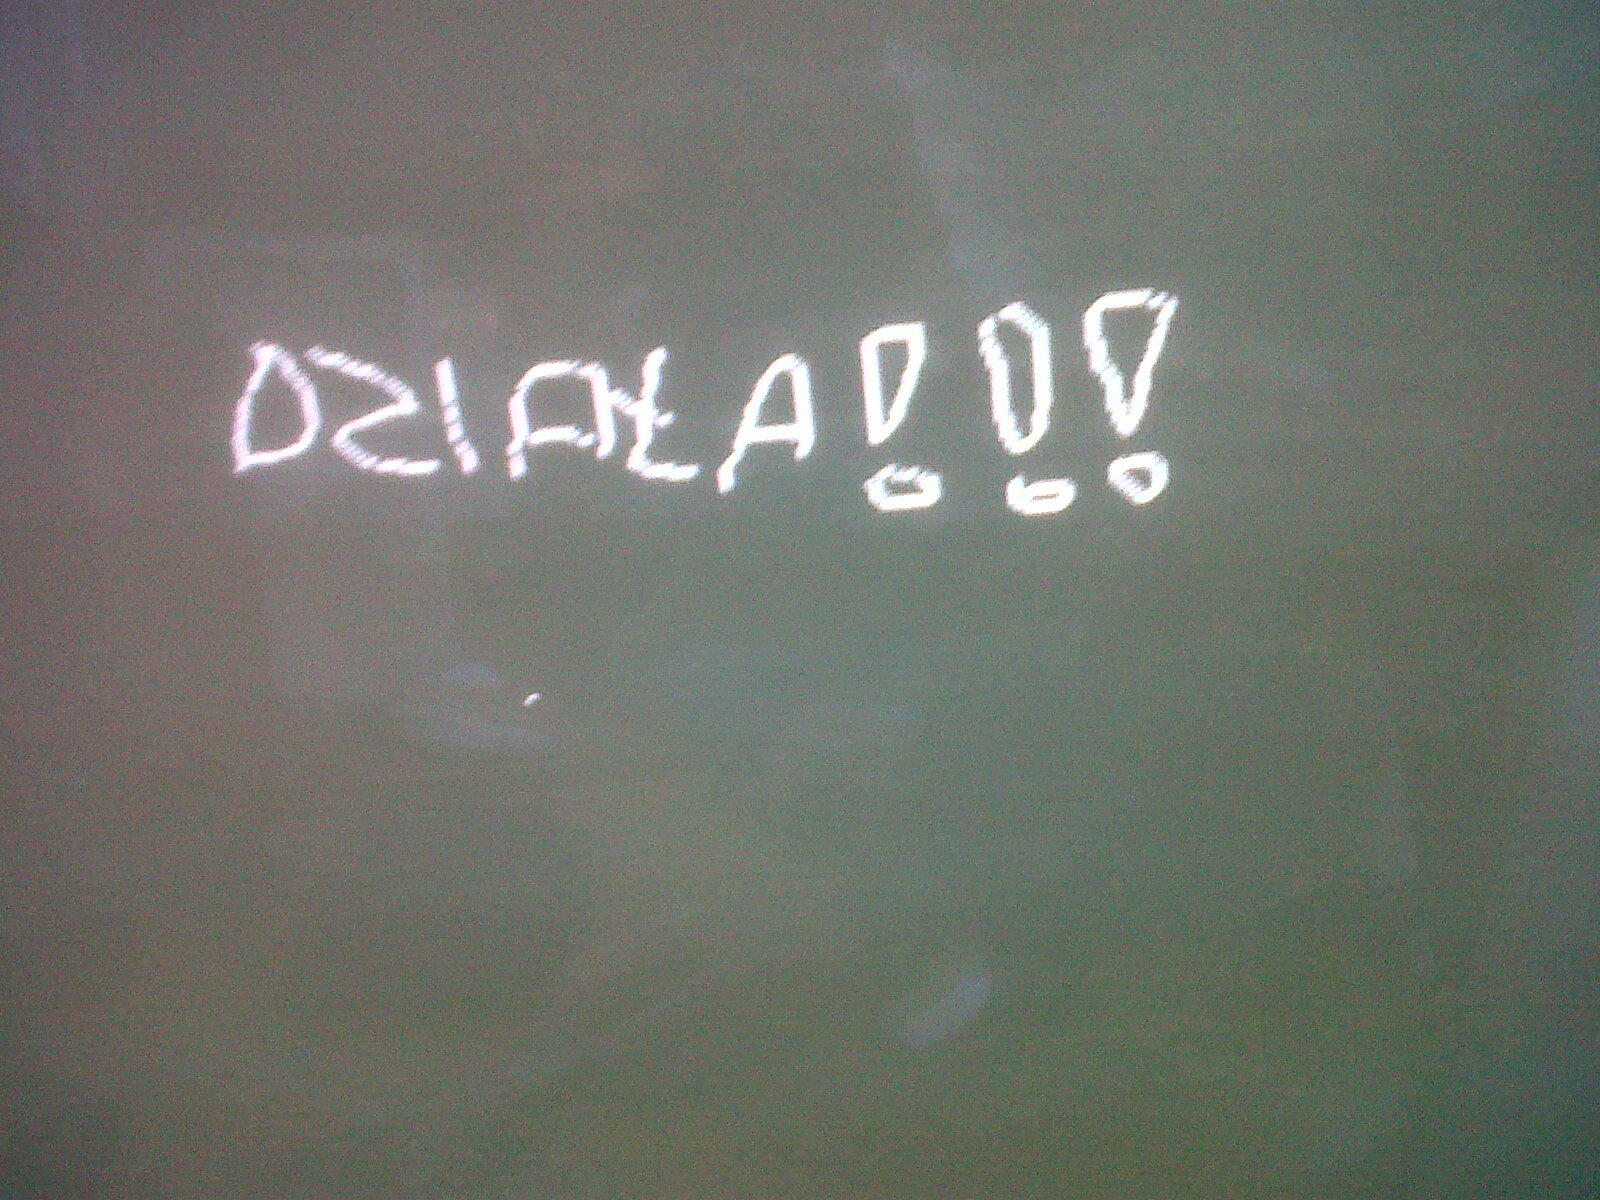 DZIAŁA!!!